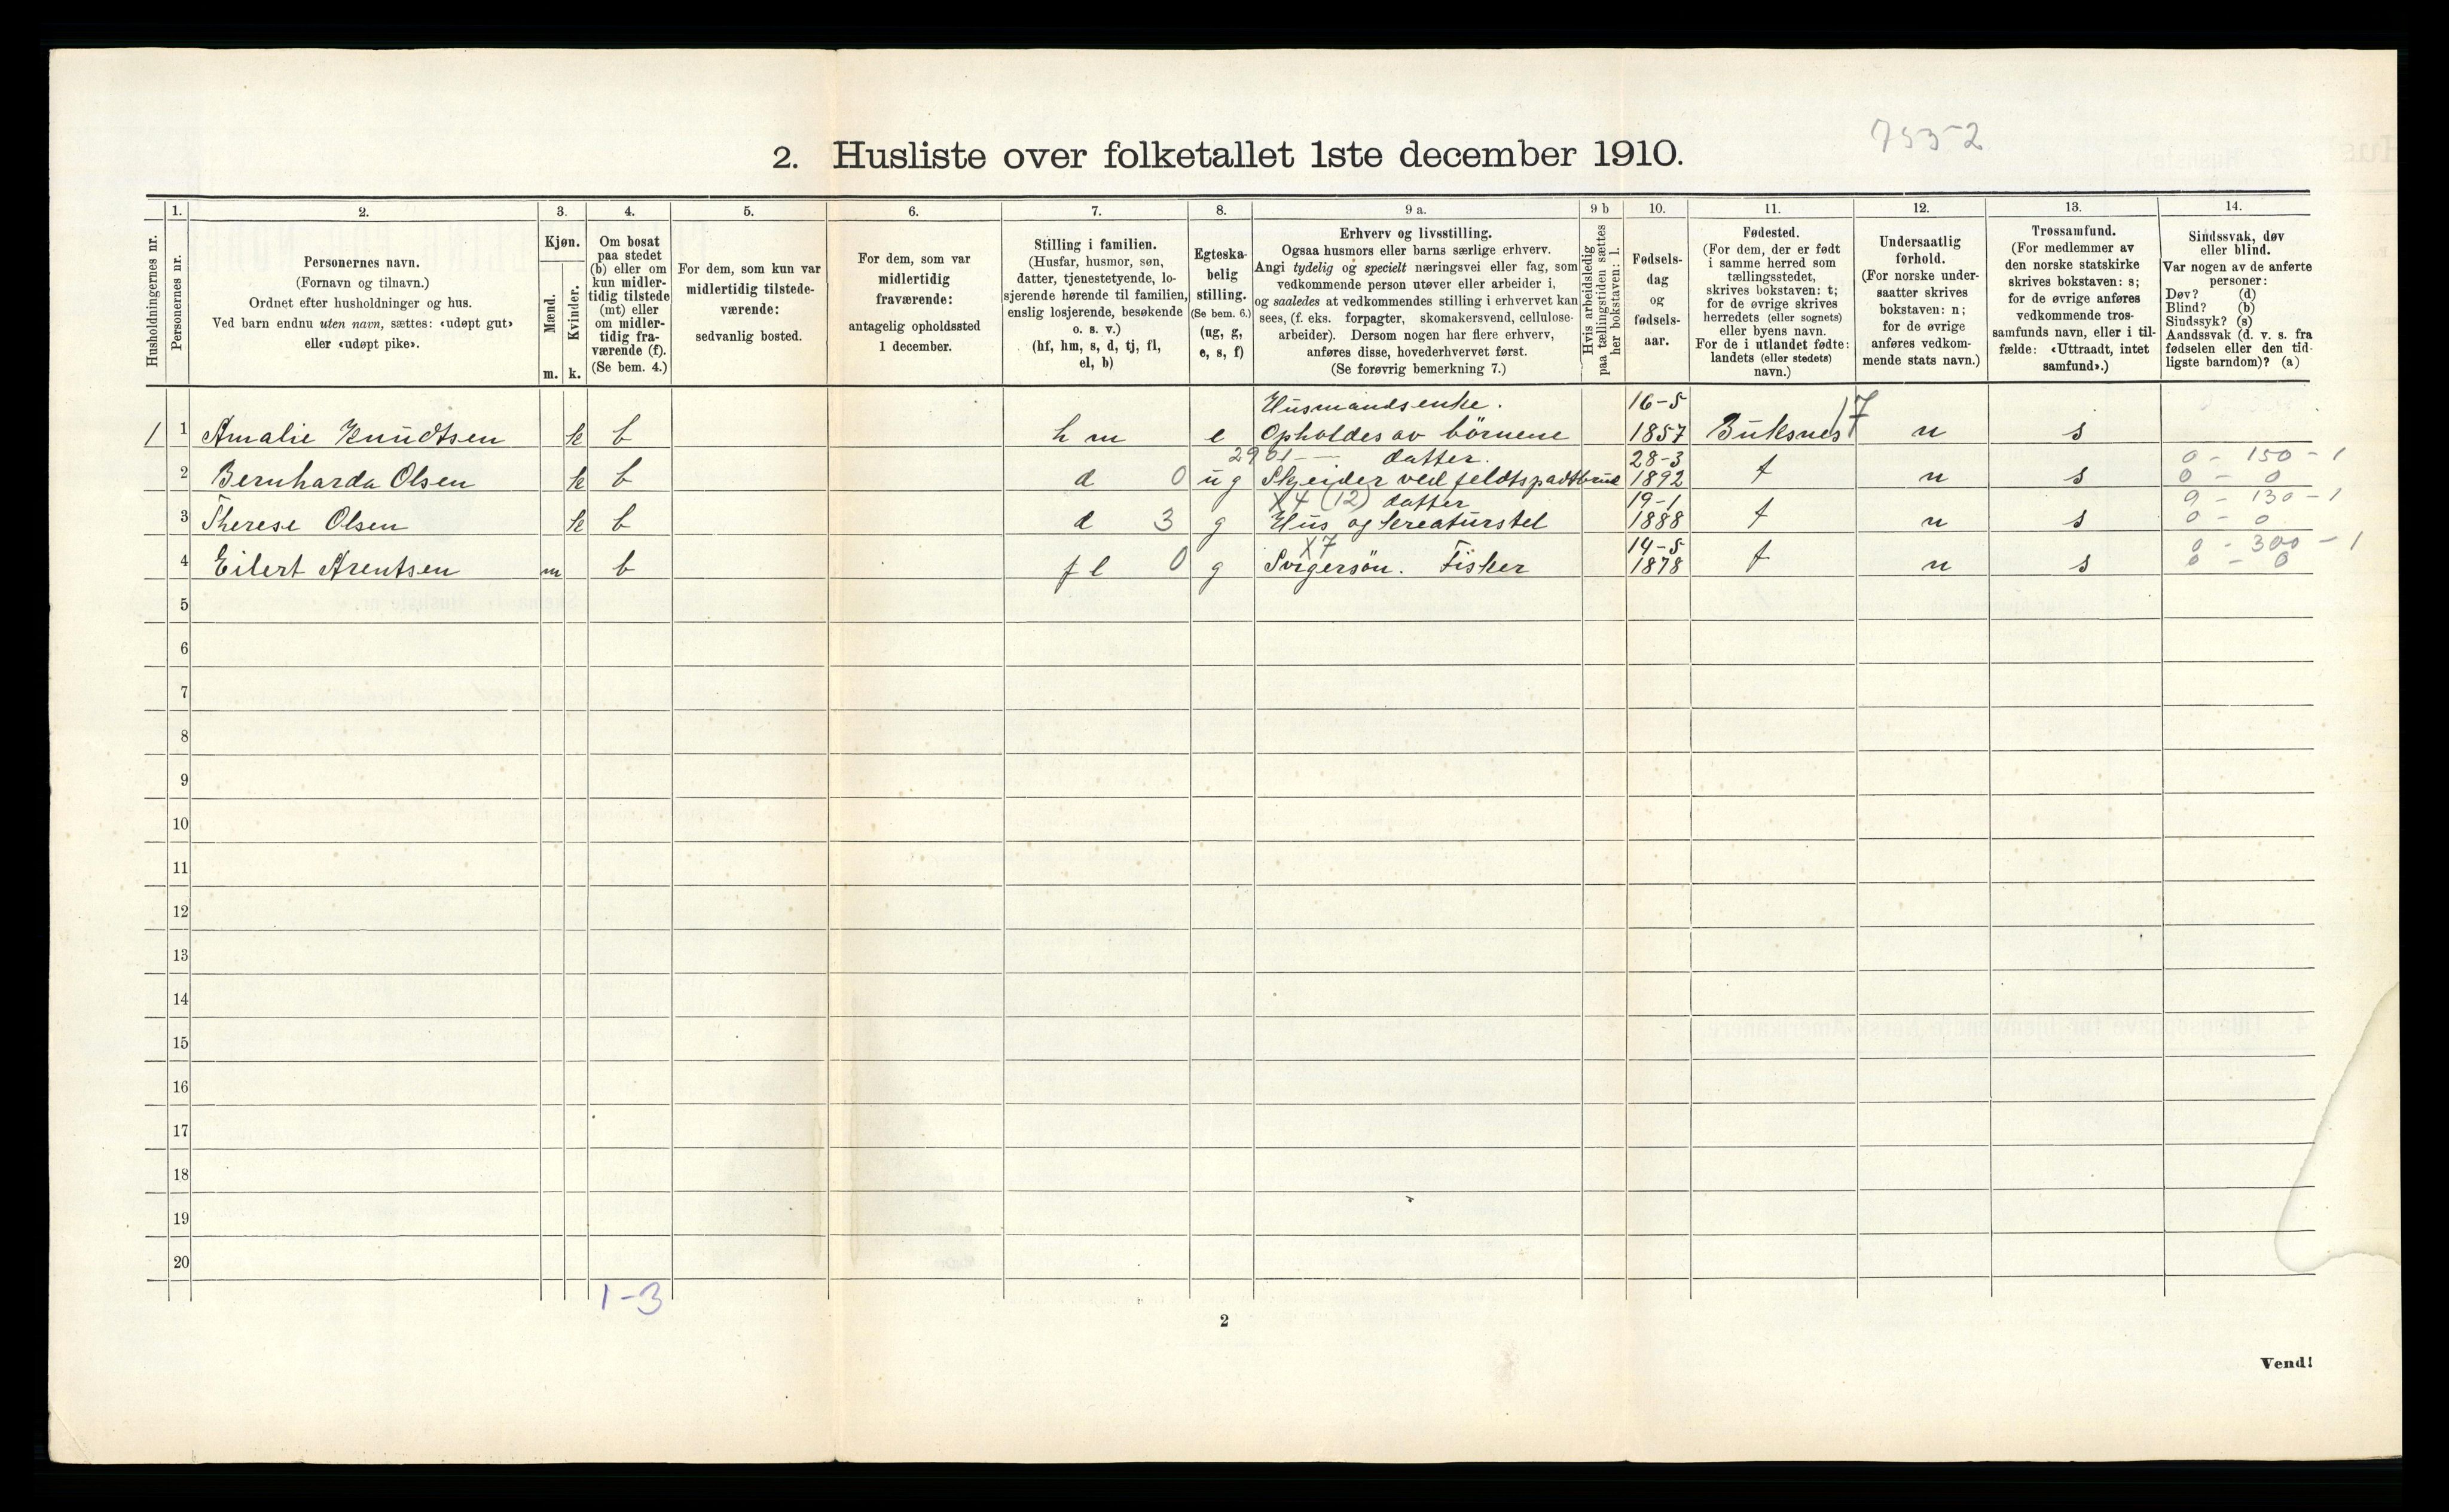 7552
2. Husliste over folketallet 1ste december 1910.
1. 2. 3. 4. 5. 6. 7. 8. 9 a. 9 b 10. 11. 12. 13. 14.
Husholdningernes nr.
Personernes nr.
Personernes navn.
(Fornavn og tilnavn.)
Ordnet efter husholdninger og hus.
Ved barn endnu uten navn, sættes: «udøpt gut»
eller «udøpt pike».
Kjøn.
Mænd.
Kvinder.
m. k.
Om bosat
paa stedet
(b) eller om
kun midler-
tidig tilstede
(mt) eller
om midler-
tidig fra-
værende (f).
(Se bem. 4.)
For dem, som kun var
midlertidig tilstede-
værende:
sedvanlig bosted.
For dem, som var
midlertidig
fraværende:
antagelig opholdssted
1 december.
Stilling i familien.
(Husfar, husmor, søn,
datter, tjenestetyende, lo-
sjerende hørende til familien,
enslig losjerende, besøkende
o. s. v.)
(hf, hm, s, d, tj, fl,
el, b)
Egteska-
belig
stilling.
(Se bem. 6.)
(ug, g,
e, s, f)
Erhverv og livsstilling.
Ogsaa husmors eller barns særlige erhverv.
Angi tydelig og specielt næringsvei eller fag, som
vedkommende person utøver eller arbeider i,
og saaledes at vedkommendes stilling i erhvervet kan
sees, (f. eks. forpagter, skomakersvend, cellulose-
arbeider). Dersom nogen har flere erhverv,
anføres disse, hovederhvervet først.
(Se forøvrig bemerkning 7.)
Hvis arbeidsledig
paa tællingstiden sættes
her bokstaven: l.
Fødsels-
dag
og
fødsels-
aar.
Fødested.
(For dem, der er født
i samme herred som
tællingsstedet,
skrives bokstaven: t;
for de øvrige skrives
herredets (eller sognets)
eller byens navn.
For de i utlandet fødte:
landets (eller stedets)
navn.)
Undersaatlig
forhold.
(For norske under-
saatter skrives
bokstaven: n;
for de øvrige
anføres vedkom-
mende stats navn.)
Trossamfund.
(For medlemmer av
den norske statskirke
skrives bokstaven: s;
for de øvrige anføres
vedkommende tros-
samfunds navn, eller i til-
fælde: «Uttraadt, intet
samfund».)
Sindssvak, døv
eller blind.
Var nogen av de anførte
personer:
Døv? (d)
Blind? (b)
Sindssyk? (s)
Aandssvak (d. v. s. fra
fødselen eller den tid-
ligste barndom)? (a)
Husmandsenke. 16-5 17
1 1 Amalie Knudtsen k b hm e Opholdes av börnene 1857 Buksnes n s
2901 — datter. 28-3 0 - 150 - 1
2 Bernharda Olsen k b d 0 ug Skjeider ved feldtspadtbrud 1892 t n s 0 - 0
X4 (12) datter 19-1 0 - 130 - 1
3 Therese Olsen k b d 3 g Hus og kreaturstel 1888 t n s 0 - 0
X7 14-5 0 - 300 - 1
4 Eilert Arentsen m b fl 0 g Svigersön. Fisker 1878 t n s 0 - 0
5
6
7
8
9
10
11
12
13
14
15
16
17
18
19
20
1-3
2
Vend!